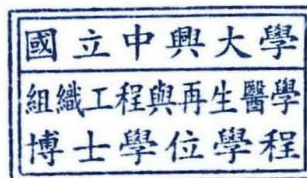 國立中興大學
組織工程與再生醫學
博士學位學程